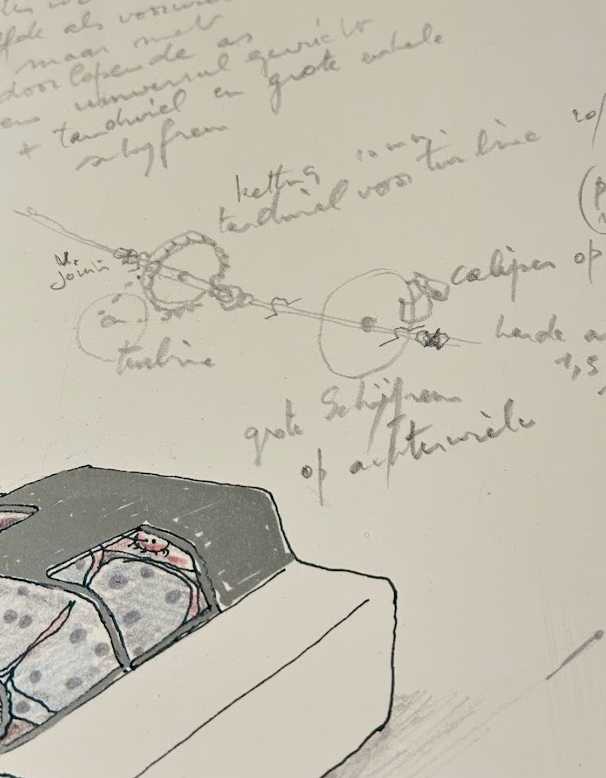 als voorwi
maar met
doorlopende as
en universal gewricht
+ tandwiel en grote enkele
schijfrem
ketting
tandwiel voor turbine
Joint
caliper op
turbine
harde a
1,5
grote Schijfrem
op achterwiele